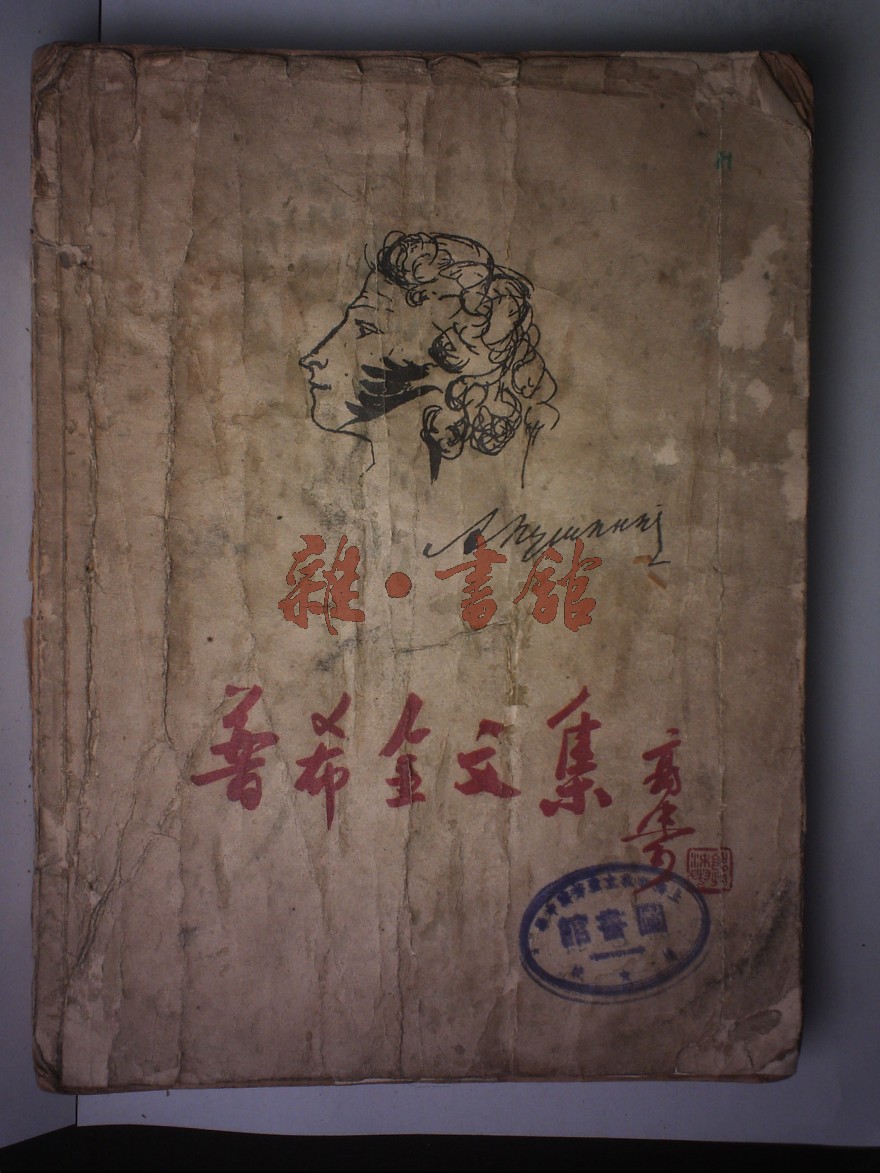 А Пушкинъ
雜·書館
普希金文集
郭沫若
圖書館